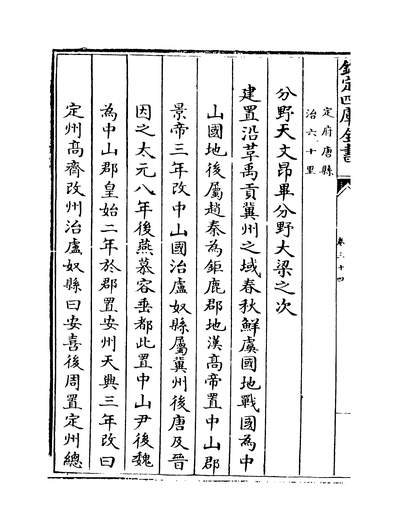 欽定四庫全書
卷三十四
定府唐縣
治六十里
分野天文昂畢分野大梁之次
建置沿革禹貢冀州之域春秋鮮虞國地戰國為中
山國地後屬趙秦為鉅鹿郡地漢高帝置中山郡
景帝三年改中山國治盧奴縣屬冀州後唐及晉
因之太元八年後燕慕容垂都此置中山尹後魏
為中山郡皇始二年於郡置安州天興三年改曰
定州高齊改州治盧奴縣曰安喜後周置定州總